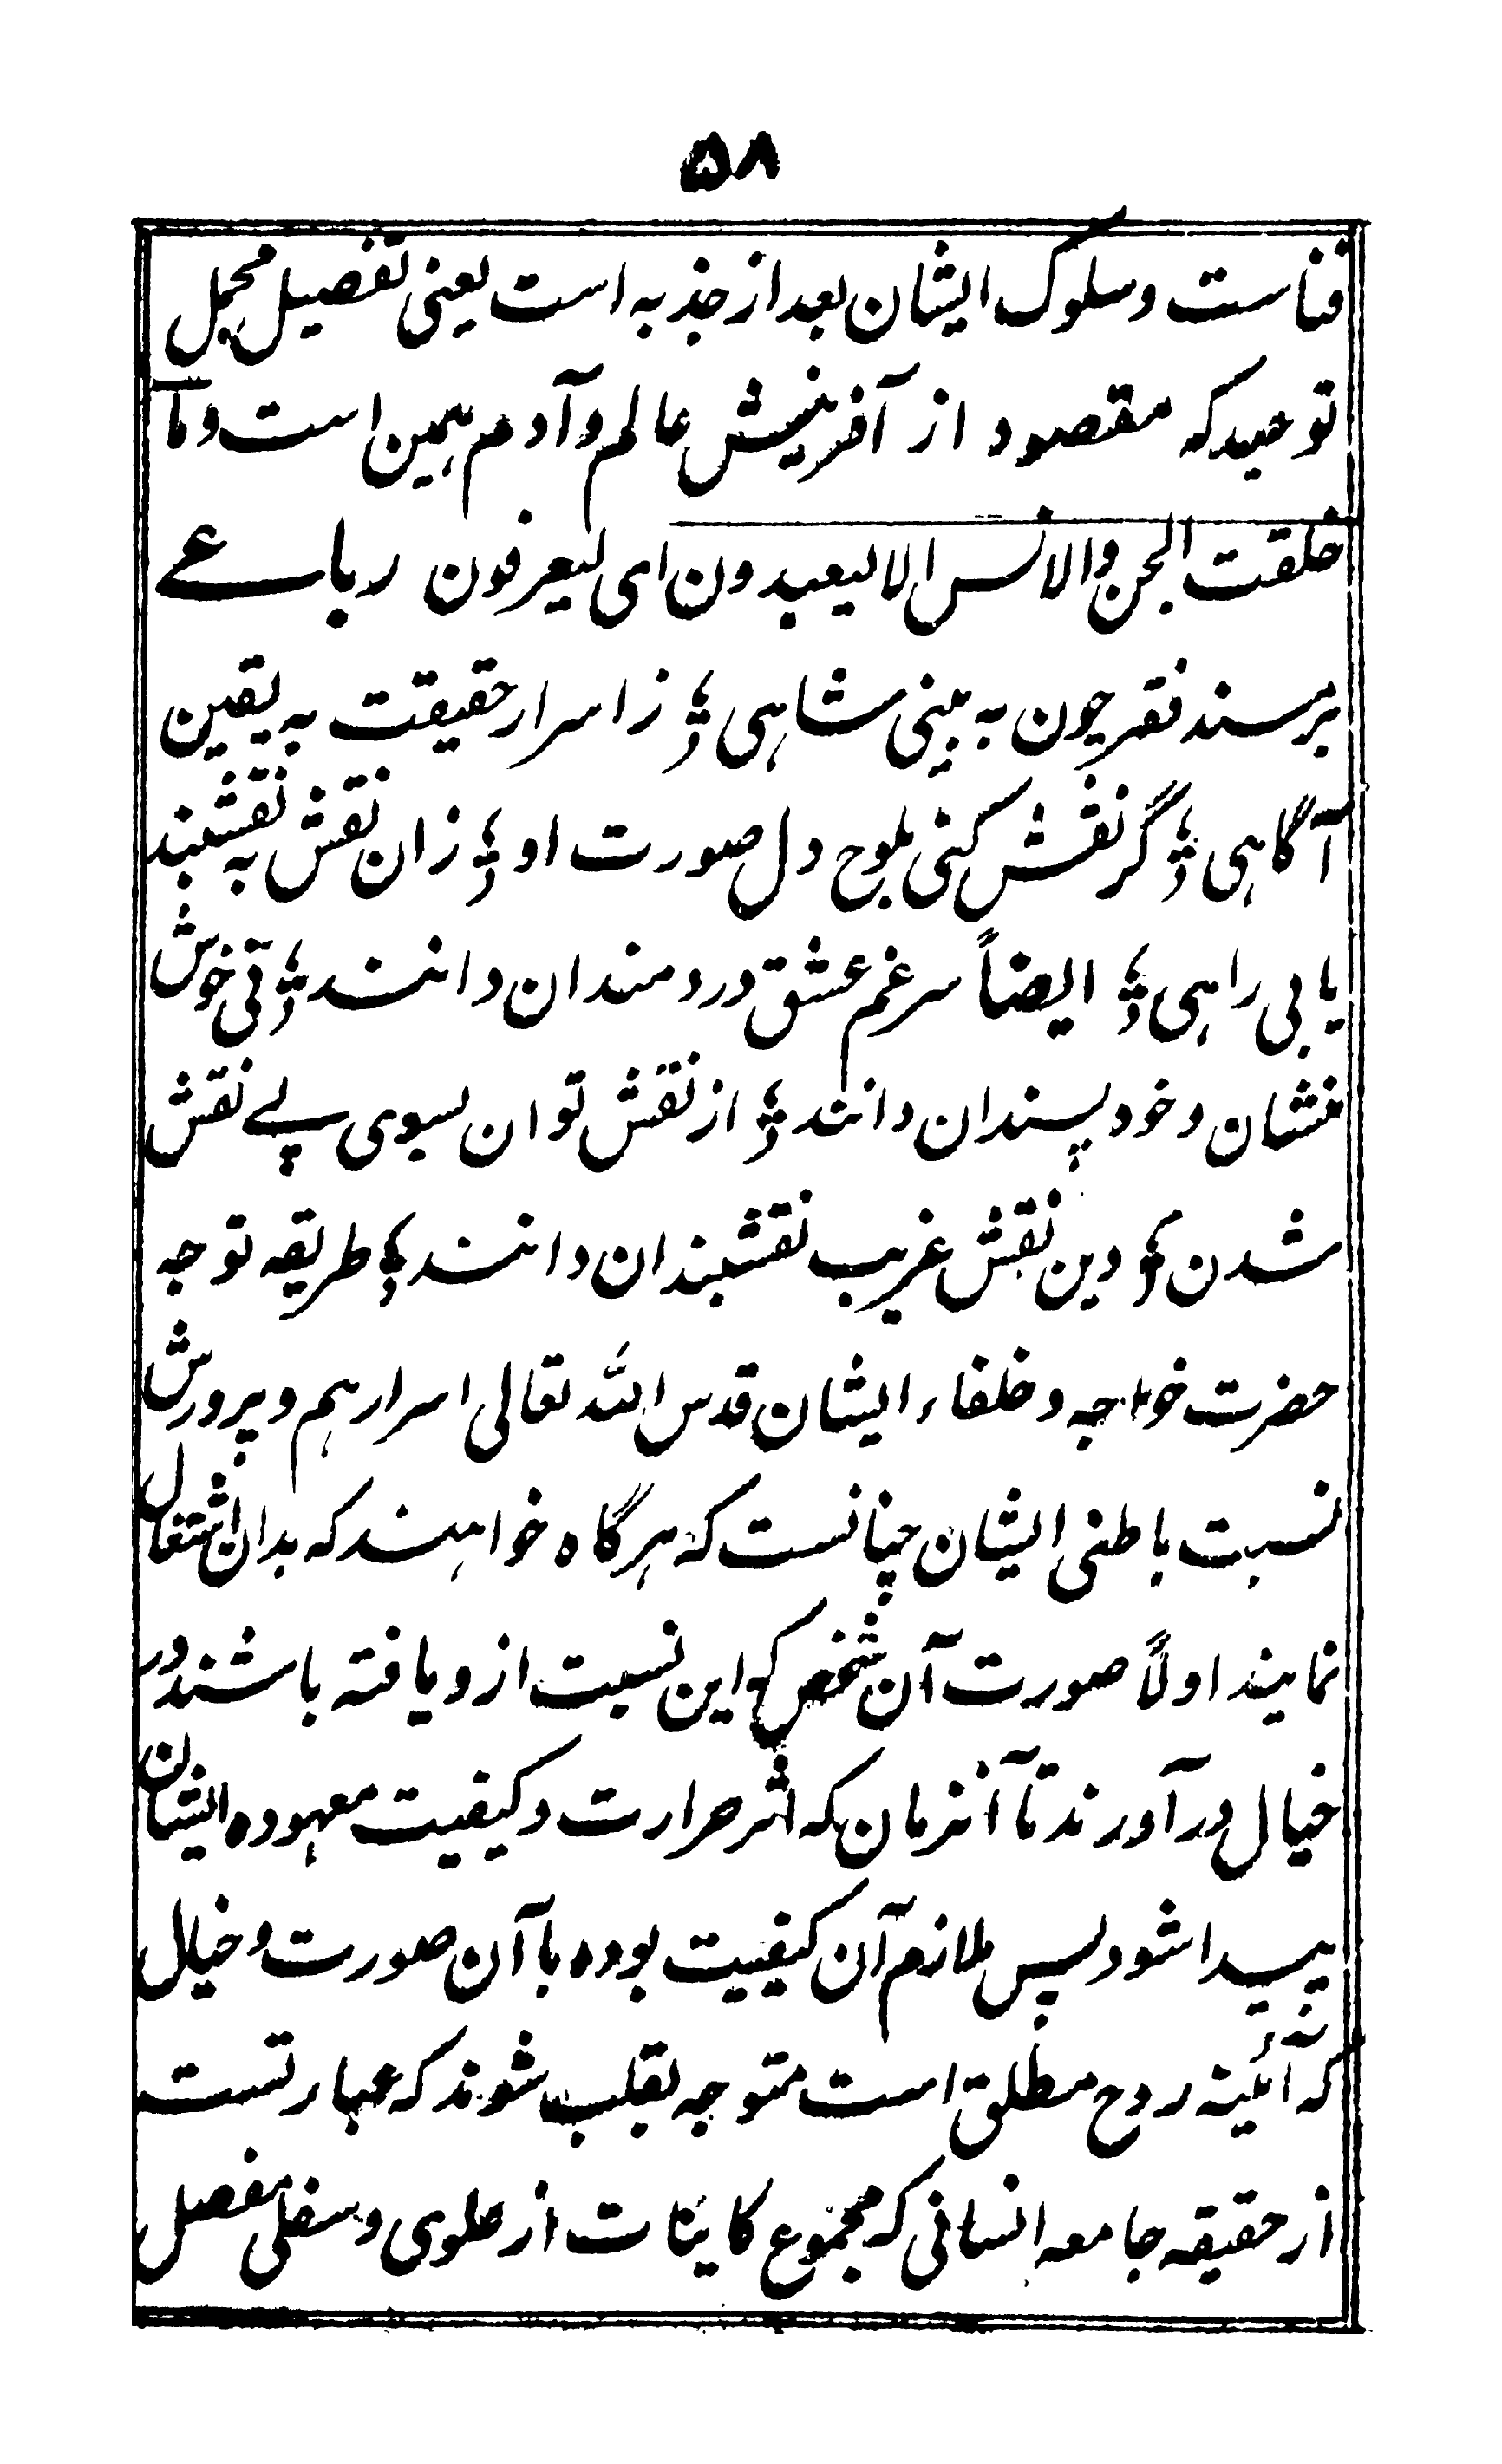 ۵۸
فناست و سلوک ایشان بعد از جذبه است یعنی تفصیل مجمل
توحید که مقصود از آفرینش عالم و آدم همین است وما
خلقت الجن والانس الا لیعبدون ای لیعرفون رباعے
بر مسند فقر چون به بینی شاهی ؛ ز اسرار حقیقت به یقین
آگاهی ؛ گر نقش کنی بلوح دل صورت او ؛ زان نقش به نقشبند
یابی راهی ؛ ایضاً سر غم عشق دردمندان دانند ؛ نی خوش
منشان و خود پسندان دانند ؛ از نقش توان بسوی بے نقش
شدن ؛ وین نقش غریب نقشبندان دانند ؛ طریقه توجه
حضرت خواجه و خلفاء ایشان قدس الله تعالی اسرارهم و پرورش
نسبت باطنی ایشان چنانست که هرگاه خواهند که بدان اشتغال
نمایند اولاً صورت آن شخص که این نسبت ازو یافته باشند در
خیال در آورند تا آنزمان که اثر حرارت و کیفیت معهوده ایشان
پیدا شود پس ملازم آن کیفیت بوده با آن صورت و خیال
که آئینه روح مطلق است متوجه بقلب شوند که عبارتست
از حقیقه جامعه انسانی که مجموع کاینات از علوی و سفلی مفصل